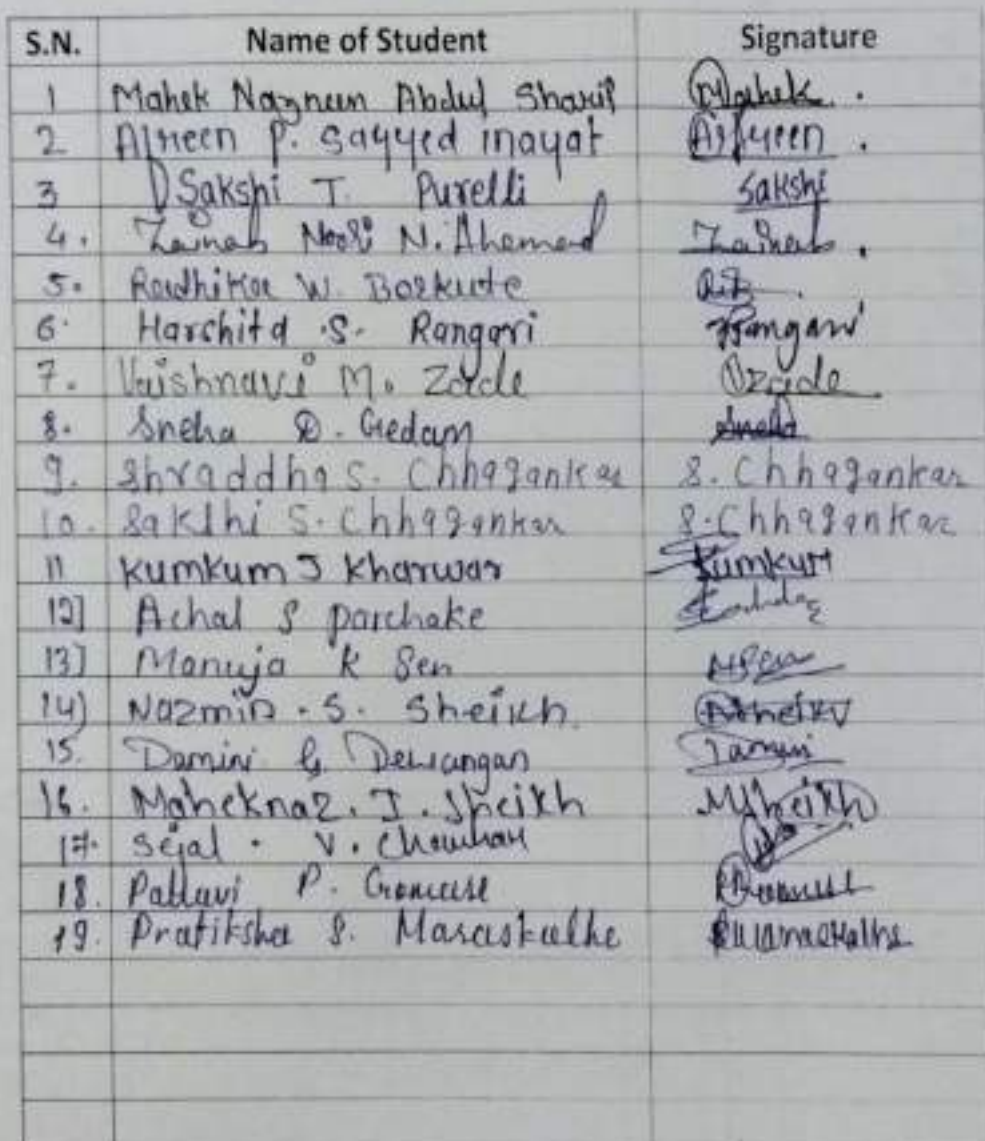 S.N. Name of Student Signature
1 Mahek Nazneen Abdul Sharif Mahek .
2 Afreen P. Sayyed inayat Afreen .
3 Sakshi T. Purelli Sakshi
4. Zainab Noori N. Ahemad Zainab .
5. Radhika W. Borkute
6. Harshita .S. Rangari Rangari
7. Vaishnavi M. Zade Vzade
8. Sneha D. Gedam Sneha
9. Shraddha S. Chhagankar S. Chhagankar
10. Sakshi S. Chhagankar S. Chhagankar
11 Kumkum J Kharwar Kumkum
12] Achal S parchake
13] Manuja K Sen
14) Nazmin . S. Sheikh. Sheikh
15. Damini G Dewangan Damini
16. Maheknaz. J. Sheikh MSheikh
17. Sejal . V. Chouhan
18. Pallavi P. Gomase
19. Pratiksha S. Maraskolhe